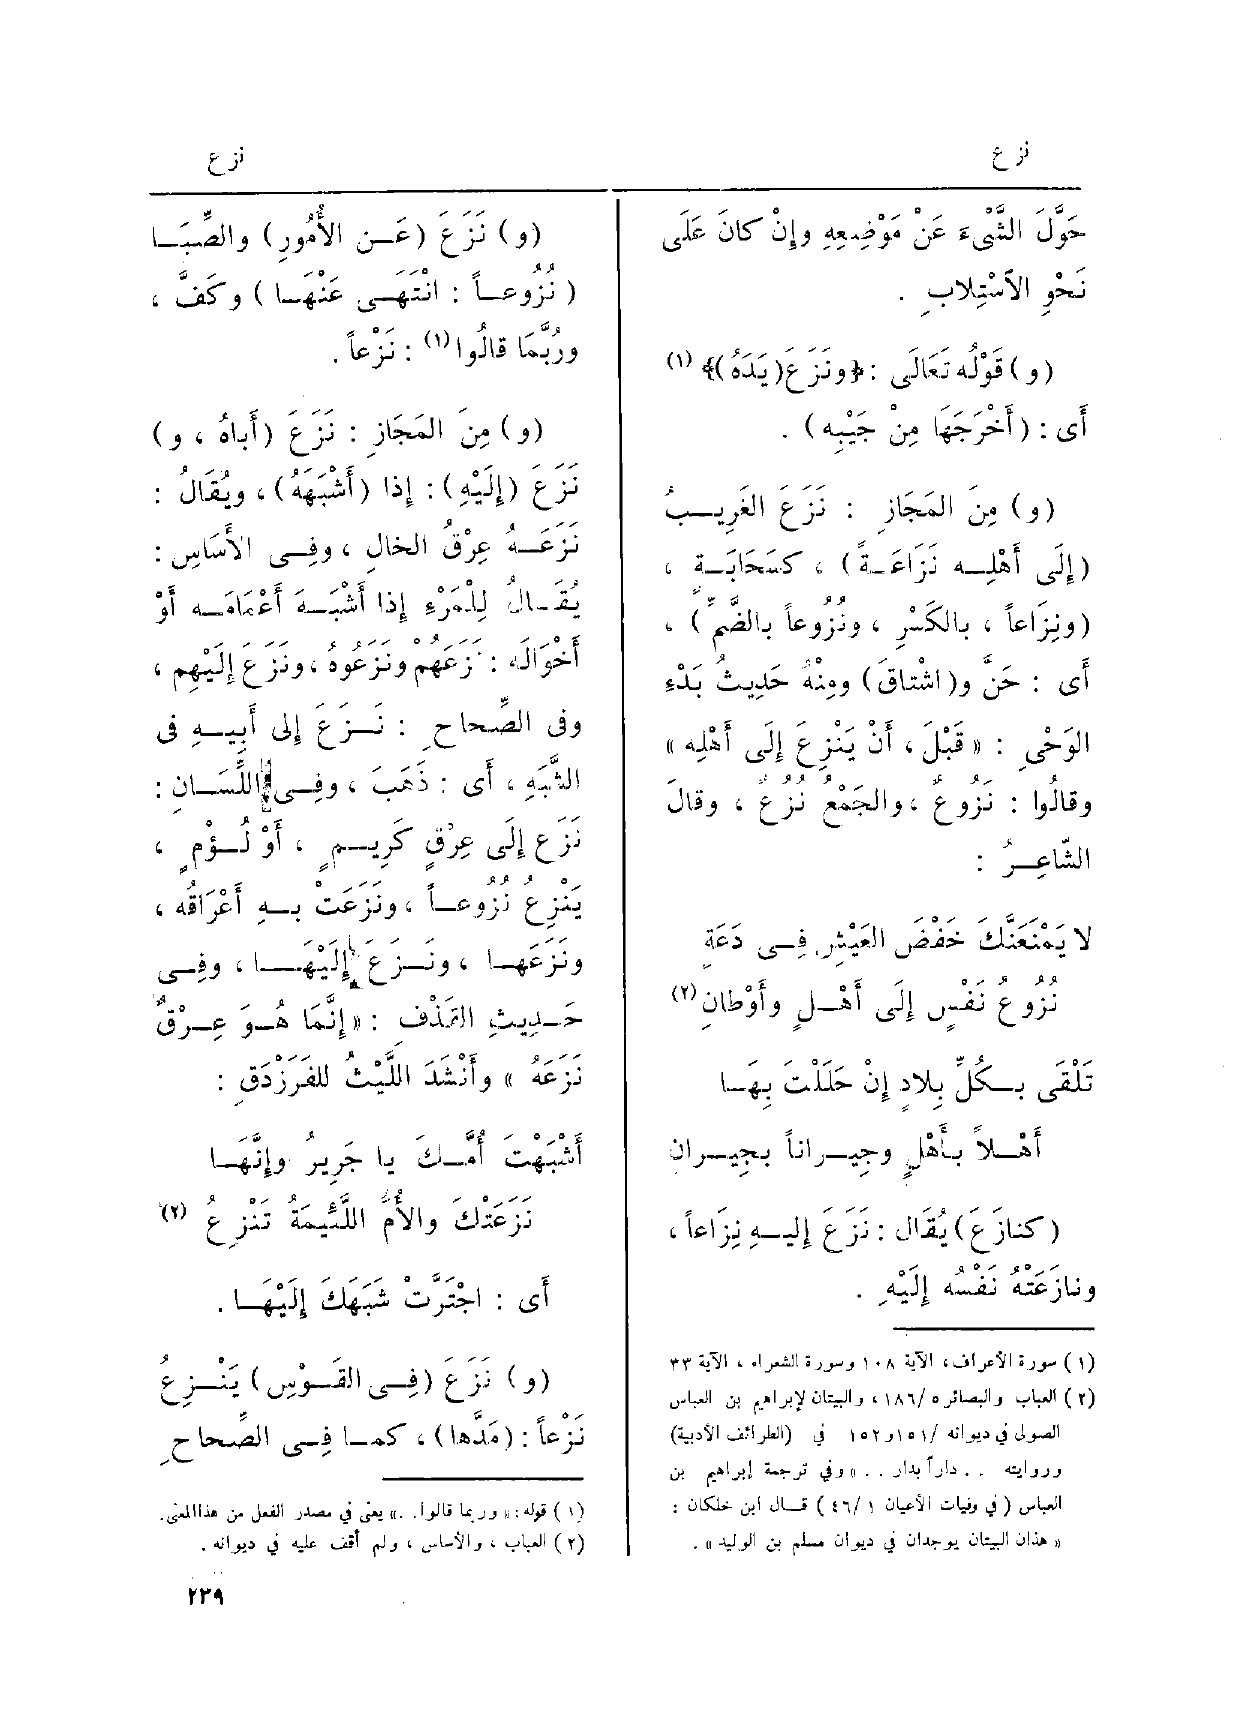 نزع
نزع
حَوَّلَ الشَّىءَ عَنْ مَوْضِعِهِ وإِنْ كانَ عَلَى
نَحْوِ الاسْتِلابِ .
(و) قَوْلُه تَعَالَى : ﴿ونَزَعَ (يَدَهُ)﴾ (١)
أَى : (أَخْرَجَهَا مِنْ جَيْبِهِ) .
(و) مِنَ المَجَازِ : نَزَعَ الغَرِيبُ
(إِلَى أَهْلِه نَزَاعَةً) ، كسَحَابَة ،
(ونِزَاعاً ، بالكَسْرِ ، ونُزُوعاً بالضَّمِّ) ،
أَى : حَنَّ و(اشْتاقَ) ومِنْهُ حَدِيثُ بَدْءِ
الوَحْىِ : « قَبْلَ ، أَنْ يَنْزِعَ إِلَى أَهْلِه »
وقالُوا : نَزُوعٌ ، والجَمْعُ نُزُعٌ ، وقالَ
الشّاعِرُ :
لا يَمْنَعَنَّكَ خَفْضَ العَيْشِ فِى دَعَةٍ
نُزُوعُ نَفْسٍ إِلَى أَهْلٍ وأَوْطانِ (٢)
تَلْقَى بكُلِّ بِلادٍ إِنْ حَلَلْتَ بِهَا
أَهْلاً بأَهْلٍ وجِيراناً بجِيرانِ
(كنازَعَ) يُقَال : نَزَعَ إِليهِ نِزَاعاً ،
ونازَعَتْهُ نَفْسُه إِلَيْهِ .
(١) سورة الأعراف، الآية ١٠٨ وسورة الشعراء ، الآية ٣٣
(٢) العباب والبصائر ١٨٦/٥ ، والبيتان لإبراهيم بن العباس
الصولى في ديوانه /١٥١و١٥٢ في (الطرائف الأدبية)
وروايته . . داراً بدار . . » وفي ترجمة إبراهيم بن
العباس ( في وفيات الأعيان ٤٦/١ ) قال ابن خلكان :
« هذان البيتان يوجدان في ديوان مسلم بن الوليد » .
(و) نَزَعَ (عَن الأُمُورِ) والصِّبَا
(نُزُوعاً : انْتَهَى عَنْهَا ) وكَفَّ ،
ورُبَّمَا قالُوا (١) : نَزْعاً .
(و) مِنَ المَجَازِ : نَزَعَ (أَباهُ ، و)
نَزَعَ (إِلَيْهِ) : إِذا (أَشْبَهَهُ) ، ويُقَالُ :
نَزَعَهُ عِرْقُ الخالِ ، وفِى الأَسَاسِ :
يُقَالُ لِلْمَرْءِ إِذا أَشْبَهَ أَعْمَامَه أَوْ
أَخْوَالَه : نَزَعَهُمْ ونَزَعُوهُ ، ونَزَعَ إِلَيْهِم ،
وفى الصِّحاحِ : نَزَعَ إِلى أَبِيهِ فى
الشَّبَهِ ، أَى : ذَهَبَ ، وفِى اللِّسَانِ :
نَزَعَ إِلَى عِرْقٍ كَرِيمٍ ، أَوْ لُؤْمٍ ،
يَنْزِعُ نُزُوعاً ، ونَزَعَتْ بهِ أَعْرَاقُه ،
ونَزَعَها ، ونَزَعَ إِلَيْهَا ، وفِى
حَدِيثِ القَذْفِ : « إِنَّمَا هُوَ عِرْقٌ
نَزَعَهُ » وأَنْشَدَ اللَّيْثُ للفَرَزْدَقِ :
أَشْبَهْتَ أُمَّكَ يا جَرِيرُ وإِنَّهَا
نَزَعَتْكَ والأُمُّ اللَّئِيمَةُ تَنْزِعُ (٢)
أَى : اجْتَرَّتْ شَبَهَكَ إِلَيْهَا .
(و) نَزَعَ (فِى القَوْسِ) يَنْزِعُ
نَزْعاً : (مَدَّها) ، كما فِى الصّحاحِ
(١) قوله : « وربما قالوا . . » يعنى في مصدر الفعل من هذا المعنى .
(٢) العباب ، والأساس ، ولم أقف عليه في ديوانه .
٢٣٩